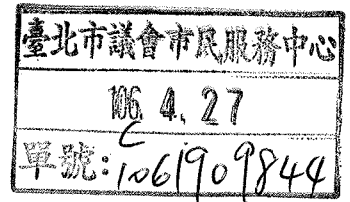 臺北市議會市民服務中心
106. 4. 27
C
單號:1061909844